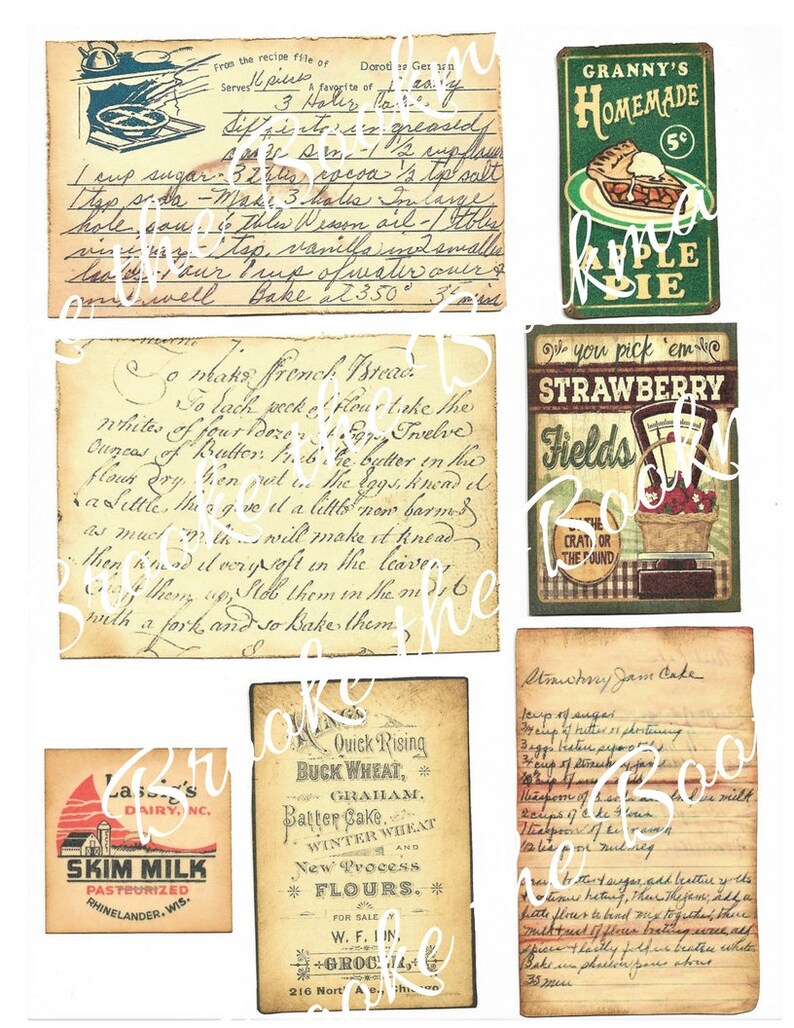 From the recipe file of Dorothea German
Serves 16 pieces A favorite of
3 Hole Cake
Sift into ungreased
cake pan - 1 1/2 cup flour
1 cup sugar - 3 Tbls cocoa 1/2 tsp salt
1 tsp soda - Make 3 holes In large
hole pour 6 tbls Wesson oil - 1 tbls
vinegar 1 tsp. vanilla in 2 smaller
pour 1 cup of water over
mix well Bake at 350° 35 min
GRANNY'S
HOMEMADE
5¢
APPLE
PIE
To make French Bread.
To Each peck of flour take the
whites of four dozen of Eggs, Twelve
ounces of Butter. Rub the butter in the
flour dry then put in the Eggs, knead it
a Little, then give it a little new barm &
as much milk as will make it knead
then knead it very soft in the leaven,
them up, Stob them in the midst
with a fork and so Bake them
you pick 'em
STRAWBERRY
Fields
BY THE
CRATE OR
THE POUND
Lassig's
DAIRY, INC.
SKIM MILK
PASTEURIZED
RHINELANDER, WIS.
KING'S
Quick Rising
BUCK WHEAT,
GRAHAM,
Batter Cake,
WINTER WHEAT
AND
New Process
FLOURS.
FOR SALE
W. F. ION,
GROCER,
216 North Ave., Chicago
Strawberry Jam Cake
1 cup of sugar
3/4 cup of butter or shortening
3 eggs beaten separately
3/4 cup of strawberry jam
1 teaspoon of soda milk
2 cups of cake flour
1 teaspoon of cinnamon
1/2 teaspoon nutmeg
Cream butter & sugar, add beaten yolks
continue beating, then the jam, add a
little flour to bind mix together, then
milk & rest of flour beating well, add
spices & lastly fold in beaten whites
Bake in shallow pans about
35 min
Brooke the Bookmaker